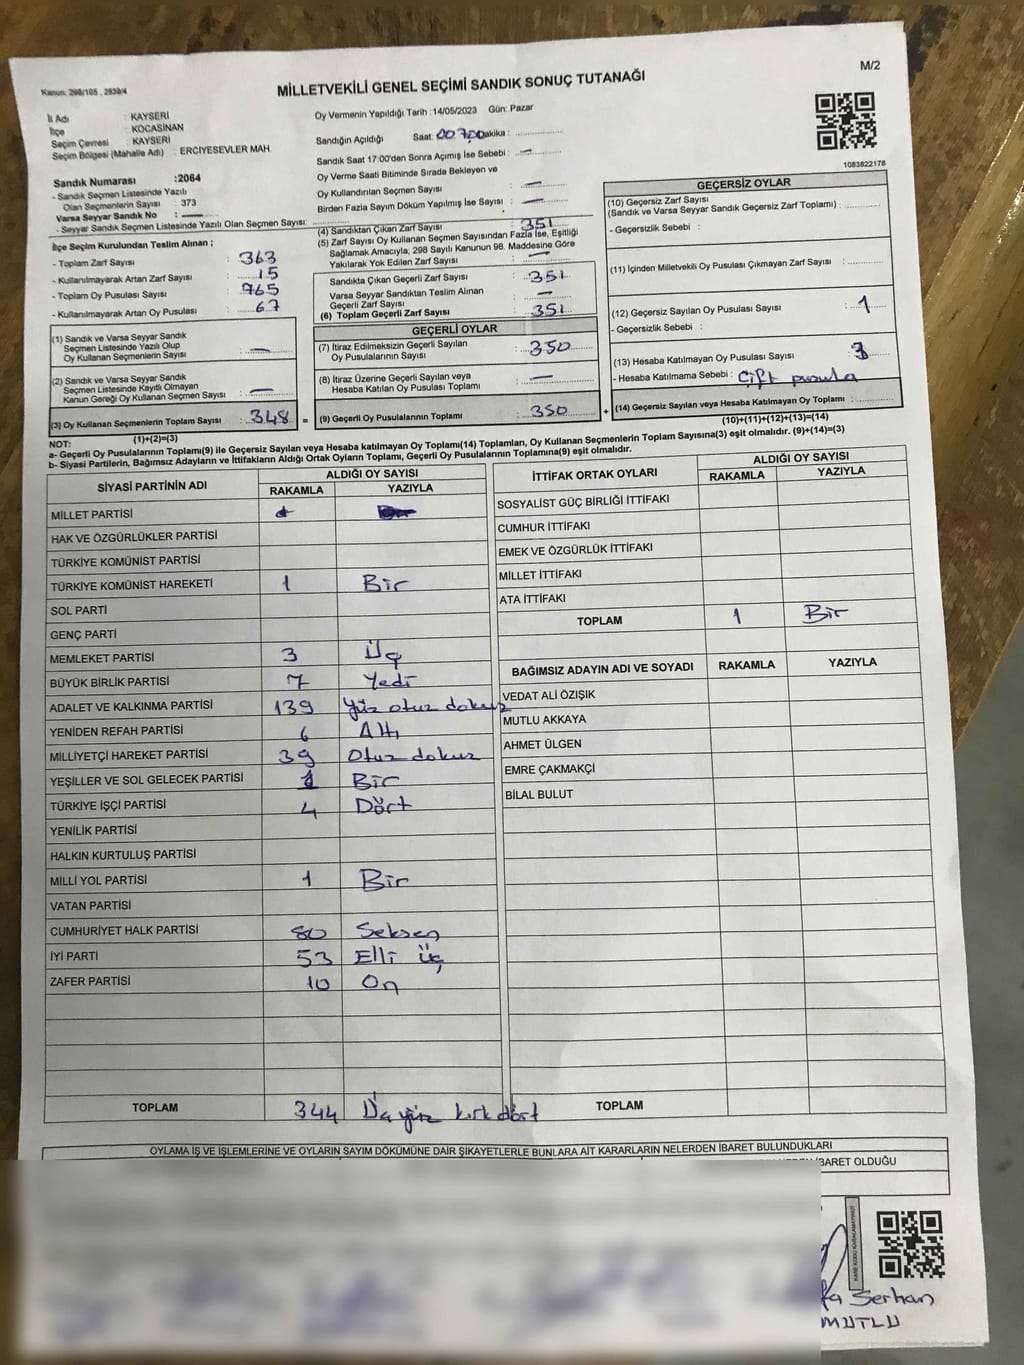 Kanun: 298/105 , 2839/4
MİLLETVEKİLİ GENEL SEÇİMİ SANDIK SONUÇ TUTANAĞI
M/2
İl Adı : KAYSERİ
İlçe : KOCASİNAN
Seçim Çevresi : KAYSERİ
Seçim Bölgesi (Mahalle Adı) : ERCIYESEVLER MAH.
Sandık Numarası :2064
- Sandık Seçmen Listesinde Yazılı
Olan Seçmenlerin Sayısı : 373
Varsa Seyyar Sandık No : —
- Seyyar Sandık Seçmen Listesinde Yazılı Olan Seçmen Sayısı:
İlçe Seçim Kurulundan Teslim Alınan ;
- Toplam Zarf Sayısı : 363
- Kullanılmayarak Artan Zarf Sayısı : 15
- Toplam Oy Pusulası Sayısı : 465
- Kullanılmayarak Artan Oy Pusulası : 67
(1) Sandık ve Varsa Seyyar Sandık
Seçmen Listesinde Yazılı Olup
Oy Kullanan Seçmenlerin Sayısı : —
(2) Sandık ve Varsa Seyyar Sandık
Seçmen Listesinde Kayıtlı Olmayan
Kanun Gereği Oy Kullanan Seçmen Sayısı : —
(3) Oy Kullanan Seçmenlerin Toplam Sayısı : 348
(1)+(2)=(3)
Oy Vermenin Yapıldığı Tarih :14/05/2023 Gün: Pazar
Sandığın Açıldığı Saat: Dakika :
Sandık Saat 17:00'den Sonra Açımış İse Sebebi : —
Oy Verme Saati Bitiminde Sırada Bekleyen ve
Oy Kullandırılan Seçmen Sayısı : —
Birden Fazla Sayım Döküm Yapılmış İse Sayısı : —
(4) Sandıktan Çıkan Zarf Sayısı : 351
(5) Zarf Sayısı Oy Kullanan Seçmen Sayısından Fazla İse, Eşitliği
Sağlamak Amacıyla, 298 Sayılı Kanunun 98. Maddesine Göre
Yakılarak Yok Edilen Zarf Sayısı : —
Sandıkta Çıkan Geçerli Zarf Sayısı : 351
Varsa Seyyar Sandıktan Teslim Alınan
Geçerli Zarf Sayısı : —
(6) Toplam Geçerli Zarf Sayısı : 351
GEÇERLİ OYLAR
(7) İtiraz Edilmeksizin Geçerli Sayılan
Oy Pusulalarının Sayısı : 350
(8) İtiraz Üzerine Geçerli Sayılan veya
Hesaba Katılan Oy Pusulası Toplamı : —
= (9) Geçerli Oy Pusulalarının Toplamı : 350 +
1083822178
GEÇERSİZ OYLAR
(10) Geçersiz Zarf Sayısı
(Sandık ve Varsa Seyyar Sandık Geçersiz Zarf Toplamı) :
- Geçersizlik Sebebi :
(11) İçinden Milletvekili Oy Pusulası Çıkmayan Zarf Sayısı :
(12) Geçersiz Sayılan Oy Pusulası Sayısı : 1
- Geçersizlik Sebebi :
(13) Hesaba Katılmayan Oy Pusulası Sayısı : 3
- Hesaba Katılmama Sebebi : Çift pusula
(14) Geçersiz Sayılan veya Hesaba Katılmayan Oy Toplamı :
(10)+(11)+(12)+(13)=(14)
NOT:
a- Geçerli Oy Pusulalarının Toplamı(9) ile Geçersiz Sayılan veya Hesaba katılmayan Oy Toplamı(14) Toplamları, Oy Kullanan Seçmenlerin Toplam Sayısına(3) eşit olmalıdır. (9)+(14)=(3)
b- Siyasi Partilerin, Bağımsız Adayların ve İttifakların Aldığı Ortak Oyların Toplamı, Geçerli Oy Pusulalarının Toplamına(9) eşit olmalıdır.
SİYASİ PARTİNİN ADI ALDIĞI OY SAYISI
RAKAMLA YAZIYLA
MİLLET PARTİSİ
HAK VE ÖZGÜRLÜKLER PARTİSİ
TÜRKİYE KOMÜNİST PARTİSİ
TÜRKİYE KOMÜNİST HAREKETİ 1 Bir
SOL PARTİ
GENÇ PARTİ
MEMLEKET PARTİSİ 3 Üç
BÜYÜK BİRLİK PARTİSİ 7 Yedi
ADALET VE KALKINMA PARTİSİ 139 Yüz otuz dokuz
YENİDEN REFAH PARTİSİ 6 Altı
MİLLİYETÇİ HAREKET PARTİSİ 39 Otuz dokuz
YEŞİLLER VE SOL GELECEK PARTİSİ 1 Bir
TÜRKİYE İŞÇİ PARTİSİ 4 Dört
YENİLİK PARTİSİ
HALKIN KURTULUŞ PARTİSİ
MİLLİ YOL PARTİSİ 1 Bir
VATAN PARTİSİ
CUMHURİYET HALK PARTİSİ 80 Seksen
İYİ PARTİ 53 Elli üç
ZAFER PARTİSİ 10 On
TOPLAM 344 Üçyüz kırk dört
İTTİFAK ORTAK OYLARI ALDIĞI OY SAYISI
RAKAMLA YAZIYLA
SOSYALİST GÜÇ BİRLİĞİ İTTİFAKI
CUMHUR İTTİFAKI
EMEK VE ÖZGÜRLÜK İTTİFAKI
MİLLET İTTİFAKI
ATA İTTİFAKI
TOPLAM 1 Bir
BAĞIMSIZ ADAYIN ADI VE SOYADI RAKAMLA YAZIYLA
VEDAT ALİ ÖZIŞIK
MUTLU AKKAYA
AHMET ÜLGEN
EMRE ÇAKMAKÇİ
BİLAL BULUT
TOPLAM
OYLAMA İŞ VE İŞLEMLERİNE VE OYLARIN SAYIM DÖKÜMÜNE DAİR ŞİKAYETLERLE BUNLARA AİT KARARLARIN NELERDEN İBARET BULUNDUKLARI
İBARET OLDUĞU
Serhan
MUTLU